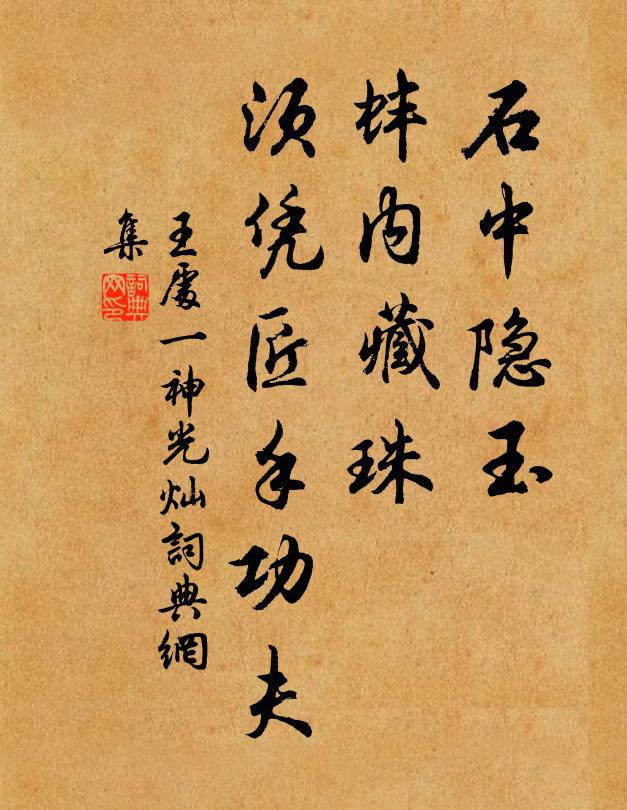 石中隐玉
蚌内藏珠
须凭匠手功夫
王处一神光灿詞典網
集
詞典
网印